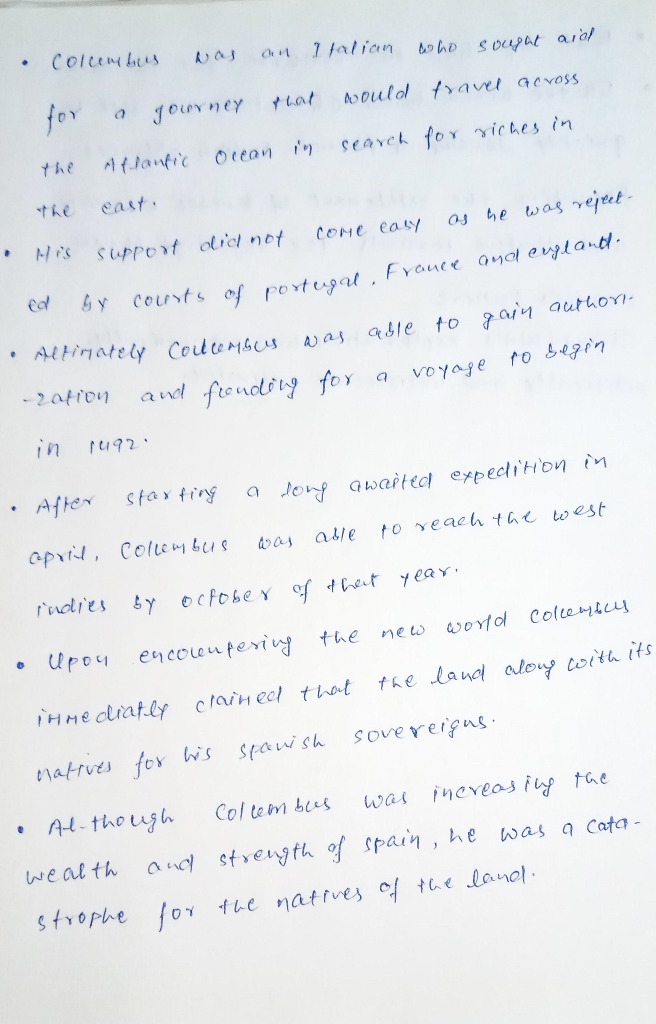 • Columbus was an Italian who sought aid
for a journey that would travel across
the Atlantic Ocean in search for riches in
the east.
• His support did not come easy as he was reject-
ed by courts of portugal, France and england.
• Altimately Coulumbus was able to gain authori-
-zation and funding for a voyage to begin
in 1492.
• After starting a long awaited expedition in
april, Columbus was able to reach the west
indies by october of that year.
• Upon encountering the new world Columbus
immediatly claimed that the land along with its
natives for his spanish sovereigns.
• Al-though Columbus was increasing the
wealth and strength of spain, he was a cata-
strophe for the natives of the land.